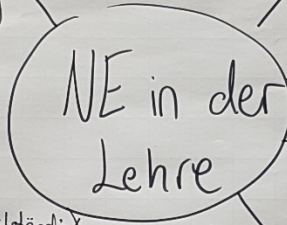 NE in der
Lehre